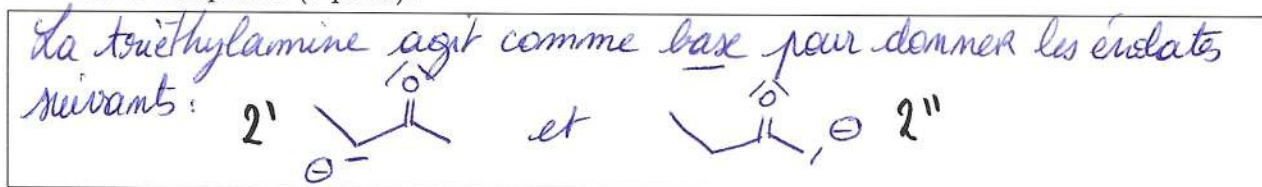 La triéthylamine agit comme base pour donner les énolates
suivants : 2' O ⊖ et O ⊖ 2"